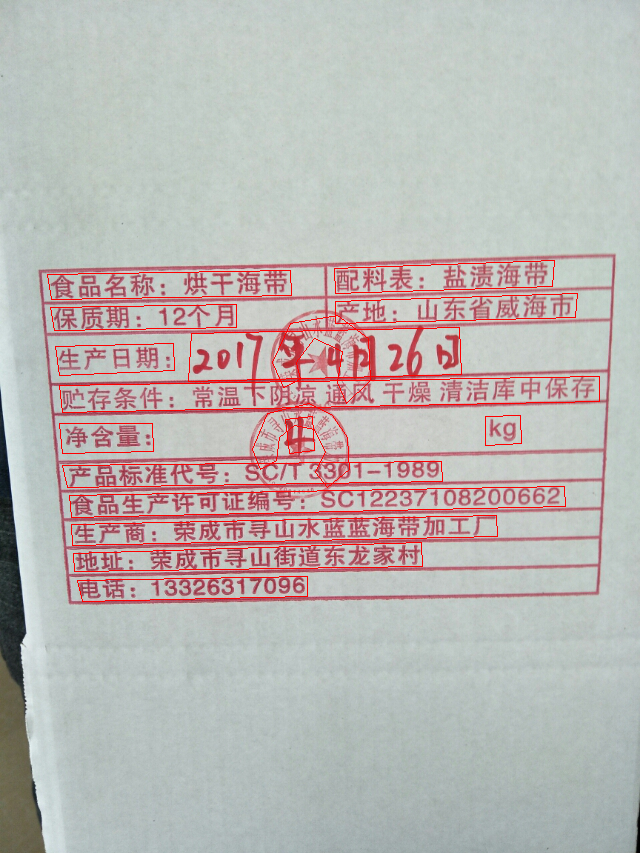 食品名称：烘干海带
配料表：盐渍海带
保质期：12个月
产地：山东省威海市
生产日期：2017年4月26日
贮存条件：常温下阴凉 通风 干燥 清洁库中保存
净含量： 4 kg
产品标准代号：SC/T 3301-1989
食品生产许可证编号：SC12237108200662
生产商：荣成市寻山水蓝蓝海带加工厂
地址：荣成市寻山街道东龙家村
电话：13326317096